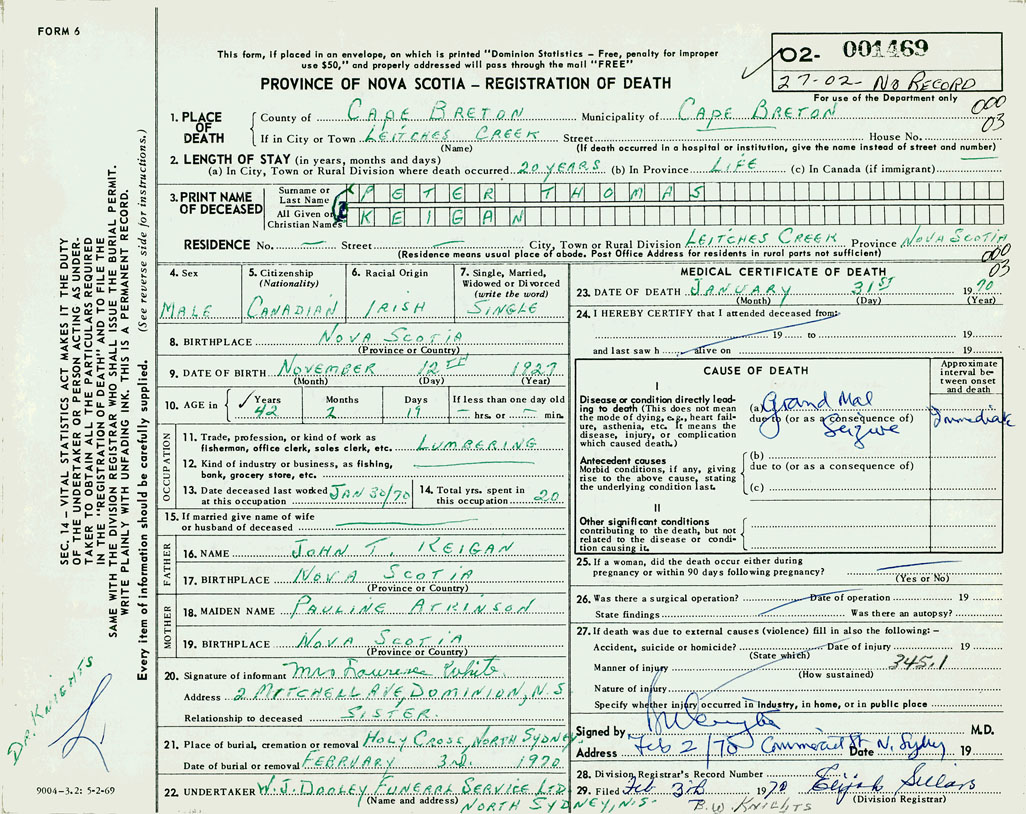 FORM 6
This form, if placed in an envelope, on which is printed "Dominion Statistics – Free, penalty for improper
use $50," and properly addressed will pass through the mail "FREE"
PROVINCE OF NOVA SCOTIA – REGISTRATION OF DEATH
02- 001469
27-02- NO RECORD
For use of the Department only
000
03
1. PLACE OF DEATH
County of CAPE BRETON Municipality of CAPE BRETON
If in City or Town LEITCHES CREEK Street House No.
(Name) (If death occurred in a hospital or institution, give the name instead of street and number)
2. LENGTH OF STAY (in years, months and days)
(a) In City, Town or Rural Division where death occurred 20 YEARS (b) In Province LIFE (c) In Canada (if immigrant) —
3. PRINT NAME OF DECEASED
Surname or Last Name PETER THOMAS
All Given or Christian Names KEIGAN
RESIDENCE No. — Street — City, Town or Rural Division LEITCHES CREEK Province NOVA SCOTIA
(Residence means usual place of abode. Post Office Address for residents in rural parts not sufficient)
000
03
4. Sex
MALE
5. Citizenship
(Nationality)
CANADIAN
6. Racial Origin
IRISH
7. Single, Married,
Widowed or Divorced
(write the word)
SINGLE
8. BIRTHPLACE NOVA SCOTIA
(Province or Country)
9. DATE OF BIRTH NOVEMBER 12TH 1927
(Month) (Day) (Year)
10. AGE in
Years Months Days If less than one day old
✓ 42 2 19 – hrs. or – min.
OCCUPATION
11. Trade, profession, or kind of work as
fisherman, office clerk, sales clerk, etc. LUMBERING
12. Kind of industry or business, as fishing,
bank, grocery store, etc.
13. Date deceased last worked
at this occupation JAN 30/70
14. Total yrs. spent in
this occupation 20
15. If married give name of wife
or husband of deceased
FATHER
16. NAME JOHN T. KEIGAN
17. BIRTHPLACE NOVA SCOTIA
(Province or Country)
MOTHER
18. MAIDEN NAME PAULINE ATKINSON
19. BIRTHPLACE NOVA SCOTIA
(Province or Country)
20. Signature of informant Mrs White
Address 2 MITCHELL AVE, DOMINION, N.S
Relationship to deceased SISTER.
21. Place of burial, cremation or removal HOLY CROSS, NORTH SYDNEY
Date of burial or removal FEBRUARY 3rd. 1970
22. UNDERTAKER W.J. DOOLEY FUNERAL SERVICE LTD
(Name and address) NORTH SYDNEY, N.S.
MEDICAL CERTIFICATE OF DEATH
23. DATE OF DEATH JANUARY 31ST 1970
(Month) (Day) (Year)
24. I HEREBY CERTIFY that I attended deceased from:
19 to 19
and last saw h alive on 19
CAUSE OF DEATH
Approximate
interval be-
tween onset
and death
I
Disease or condition directly lead-
ing to death (This does not mean
the mode of dying, e.g., heart fail-
ure, asthenia, etc. It means the
disease, injury, or complication
which caused death.)
(a) Grand Mal
due to (or as a consequence of)
Seizure
Immediate
Antecedent causes
Morbid conditions, if any, giving
rise to the above cause, stating
the underlying condition last.
(b)
due to (or as a consequence of)
(c)
II
Other significant conditions
contributing to the death, but not
related to the disease or condi-
tion causing it.
25. If a woman, did the death occur either during
pregnancy or within 90 days following pregnancy?
(Yes or No)
26. Was there a surgical operation? Date of operation 19
State findings Was there an autopsy?
27. If death was due to external causes (violence) fill in also the following: –
Accident, suicide or homicide? Date of injury 19
(State which)
Manner of injury 345.1
(How sustained)
Nature of injury
Specify whether injury occurred in Industry, in home, or in public place
Signed by M.D.
Address Feb 2/70 Commercial St N. Sydney Date 19
28. Division Registrar's Record Number
29. Filed Feb 3rd 1970 Elijah Sellars
(Division Registrar)
B.W. KNIGHTS
SEC. 14 – VITAL STATISTICS ACT MAKES IT THE DUTY
OF THE UNDERTAKER OR PERSON ACTING AS UNDER-
TAKER TO OBTAIN ALL THE PARTICULARS REQUIRED
IN THE "REGISTRATION OF DEATH" AND TO FILE THE
SAME WITH THE DIVISION REGISTRAR WHO SHALL ISSUE THE BURIAL PERMIT.
WRITE PLAINLY WITH UNFADING INK. THIS IS A PERMANENT RECORD.
Every item of information should be carefully supplied. (See reverse side for instructions.)
DR. KNIGHTS
9004-3.2: 5-2-69